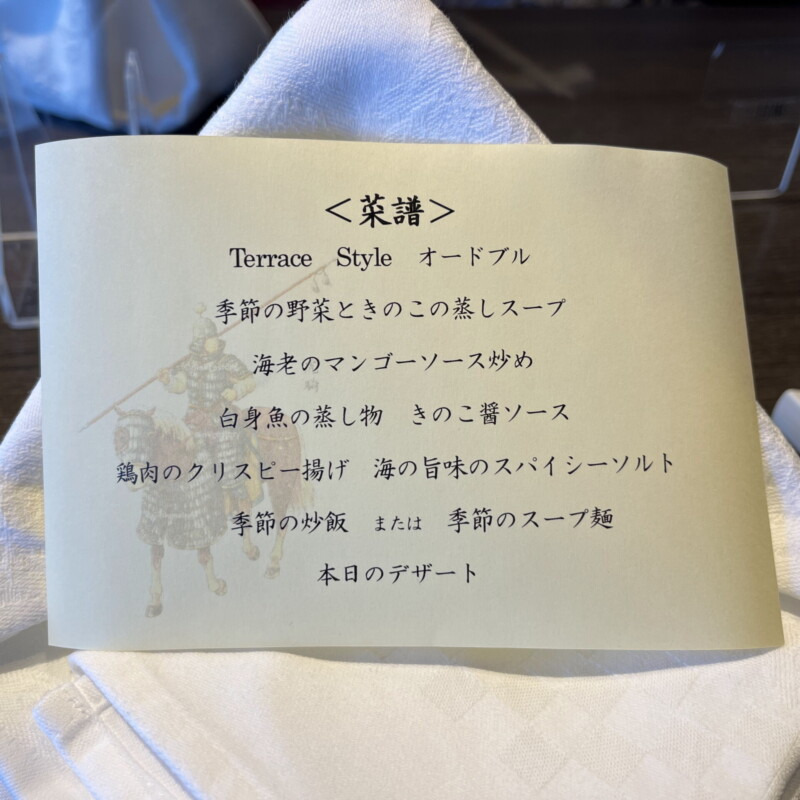 ＜菜譜＞
Terrace　Style　オードブル
季節の野菜ときのこの蒸しスープ
海老のマンゴーソース炒め
白身魚の蒸し物　きのこ醤ソース
鶏肉のクリスピー揚げ　海の旨味のスパイシーソルト
季節の炒飯　または　季節のスープ麺
本日のデザート